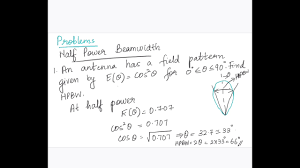 Problems
Half Power Beamwidth
1. An antenna has a field pattern
given by E(θ) = cos²θ for 0° ≤ θ ≤ 90°. Find
HPBW.
At half power
E(θ) = 0.707
cos²θ = 0.707
cosθ = √0.707 ⇒ θ = 32.7 ≈ 33°
HPBW = 2θ = 2×33 = 66°